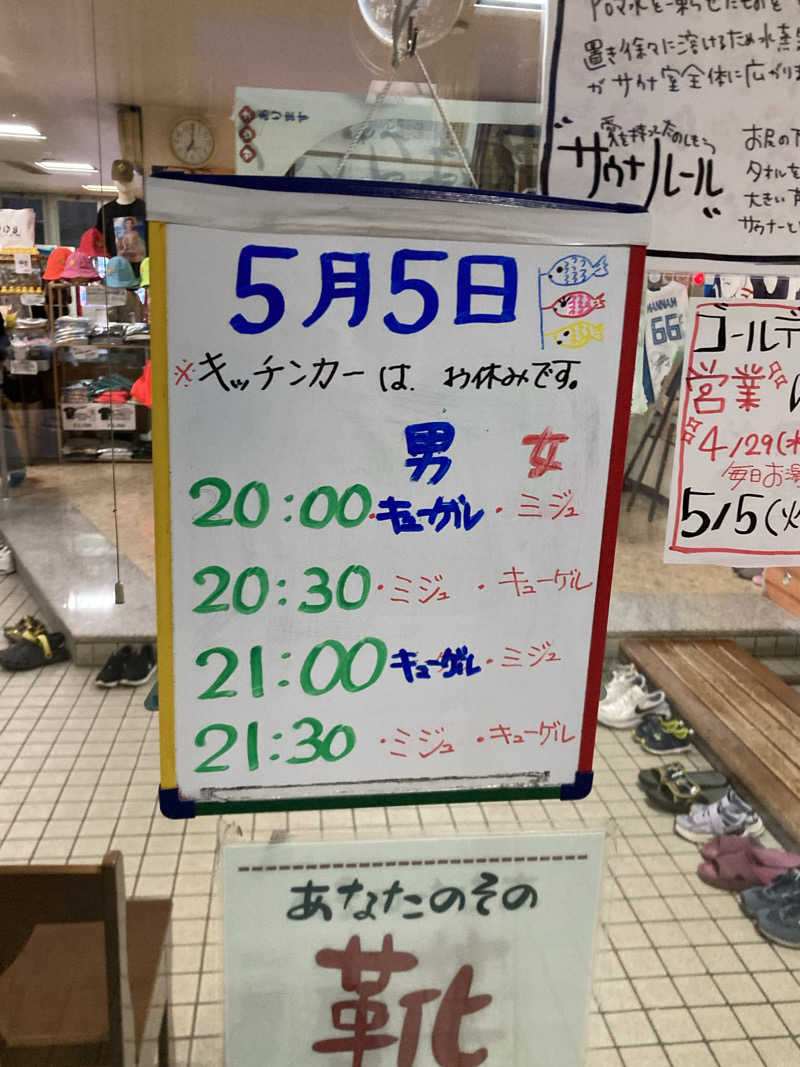 置き徐々に溶けるため水蒸
がサウナ室全体に広がりま
あります
愛を持ってたのしもう
サウナルール
お尻の下
タオルを
大きい
サウナーと
5月5日
※キッチンカーは、お休みです。
男 女
20:00・キューゲル・ミジュ
20:30・ミジュ・キューゲル
21:00 キューゲル・ミジュ
21:30・ミジュ・キューゲル
HANNAM
66
ゴールデ
営業
4/29(水
毎日お湯
5/5(火
あなたのその
靴